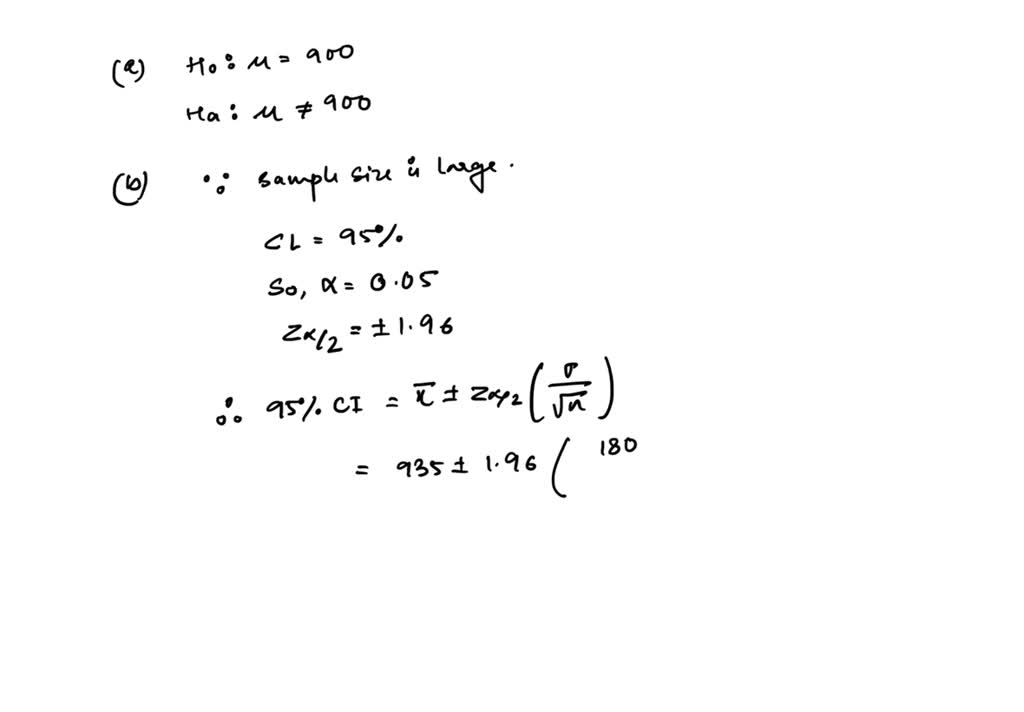 (a) H₀: μ = 900
Ha: μ ≠ 900
(b) ∵ sample size is large.
CL = 95%
So, α = 0.05
Zα/2 = ± 1.96
∴ 95% CI = x̄ ± Zα/2 (σ/√n)
= 935 ± 1.96 ( 180